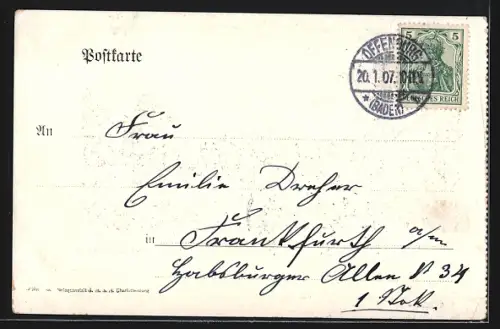 Postkarte
OFFENBURG
20.1.07.
* (BADEN)
5 5
REICH
An Frau
Emilie Dreher
in Frankfurth a/m
Habsburger Allee 34
1 Stck.